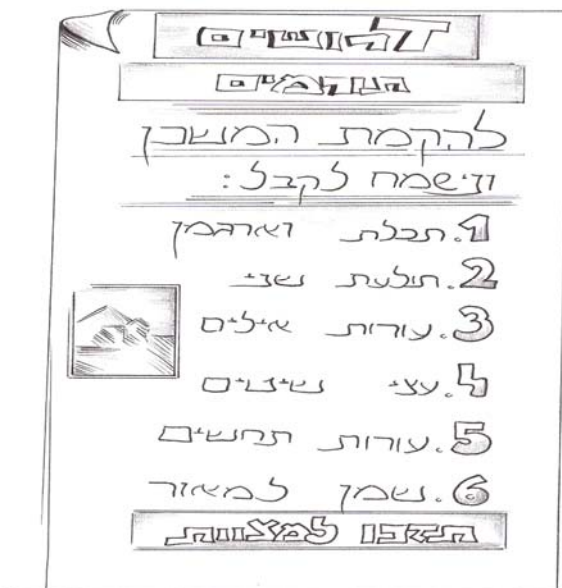 דרושים
תורמים
להקמת המשכן
ונישמח לקבל:
1. תכלת וארגמן
2. תולעת שני
3. עורות אילים
4. עצי שיטים
5. עורות תחשים
6. שמן למאור
תיזכו למצוות